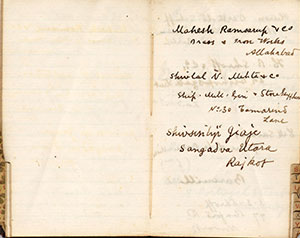 Mahesh Ramsarup & Co
Brass & Iron Works
Allahabad
Shivlal V. Mehta & Co
Ship. Mill. Gin &
No: 30 Tamarind
Lane
Sangadva Utara
Rajkot